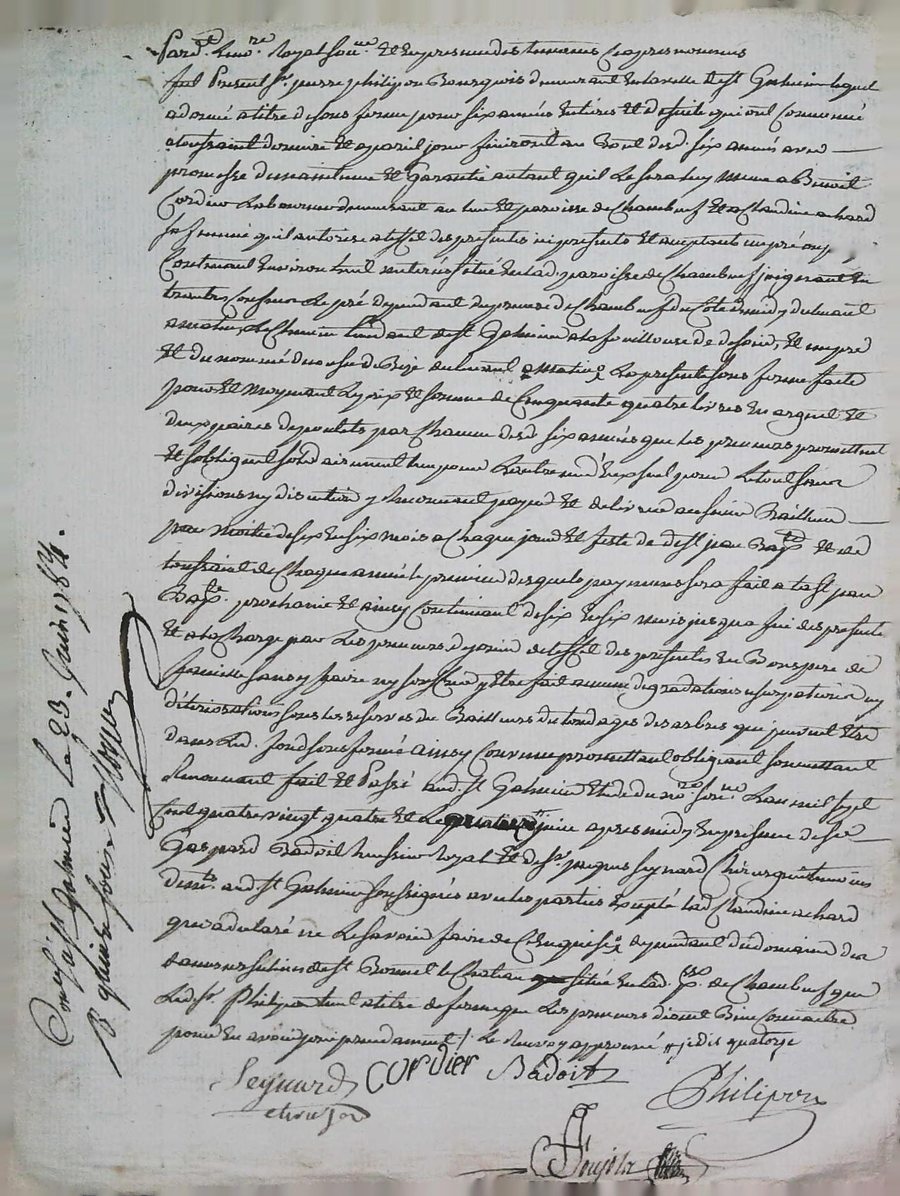 Pard.t le no.re royal sous.né et en presence des temoins cy apres nommés
fut Present s.r pierre philipon Bourgeois demeurant en la ville de st Galmier lequel
a donné a titre de sous ferme pour six années entieres et de suite qui ont commencé
a toussaint derniere et a pareil jour finiront au bout desd. six années avec
promesse de maintenue et Garantie autant qu'il le sera luy meme a Benoit
Cordier laboureur demeurant au lieu et paroisse de Chambœuf et a Claudine achard
sa femme qu'il autorise a l'effet des presentes icy presents et acceptants un pré
Contenant environ situé en lad. paroisse de Chambœuf joignant
le pré dependant du prieuré de Chambœuf du coté de midy
matin, le Chemin tendant de st Galmier a la fouillouse de de soir, et un pré
et du nommé de Bize matin; la presente sous ferme faite
pour et moyenant le prix et somme de Cinquante quatre livres en argent et
deux paires de poulets par Chacune desd. six années que les preneurs promettent
et s'obligent solidairement l'un pour l'autre un d'eux seul pour le tout sans
divisions ny discution y renoncant payer et delivrer au sieur Bailleur
par moitié de six en six mois a chaque jour et feste de st jean Bap.te et de
toussaint de Chaque année le premier desquels payemens sera fait a la st jean
Bap.te prochaine et ainsy Continuant de six en six mois jusqua fin des presentes
et a la charge par les preneurs de jouir de l'effet des presentes en Bons peres de
famille sans y faire ny souffrir y etre fait aucune degradations usurpations ny
déteriorations sous les reserves du Bailleur du tondages des arbres qui peuvent etre
dans led. fond sous fermé ainsy Convenu promettant obligeant soumettant
Renoncant fait et Passé aud. st Galmier etude du no.re sous.né L'an mil sept
Cent quatre vingt quatre et le juin apres midy en presence de sr
Gaspard Badoit huissier royal et de s.r jacques seynard Chirurgien
dem.ts aud. st Galmier soussignés avec les parties excepté lad. Claudine achard
qui a declaré ne le savoir faire de ce enquise; dependant du domaine des
dames ursulines de st Bonnet le Chateau situé en lad. p.sse de Chambœuf que
led. s.r Philipon tient a titre de ferme que les preneurs disent Bien Connaitre
pour en avoir joui precedament / le renvoy approuvé # je dis quatorze
Seynard Cordier Badoit
chirurgn Philipon
Controlé a st Galmier le 23. juin 1784.
R quinze sous